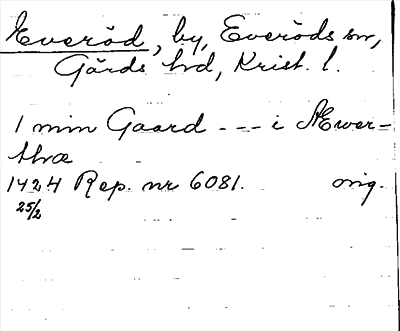 Everöd, by, Everöds sn,
Gärds hd, Krist. l.
1 min Gaard --- i Æwer-
thræ
1424 Rep. nr 6081. orig.
25/2